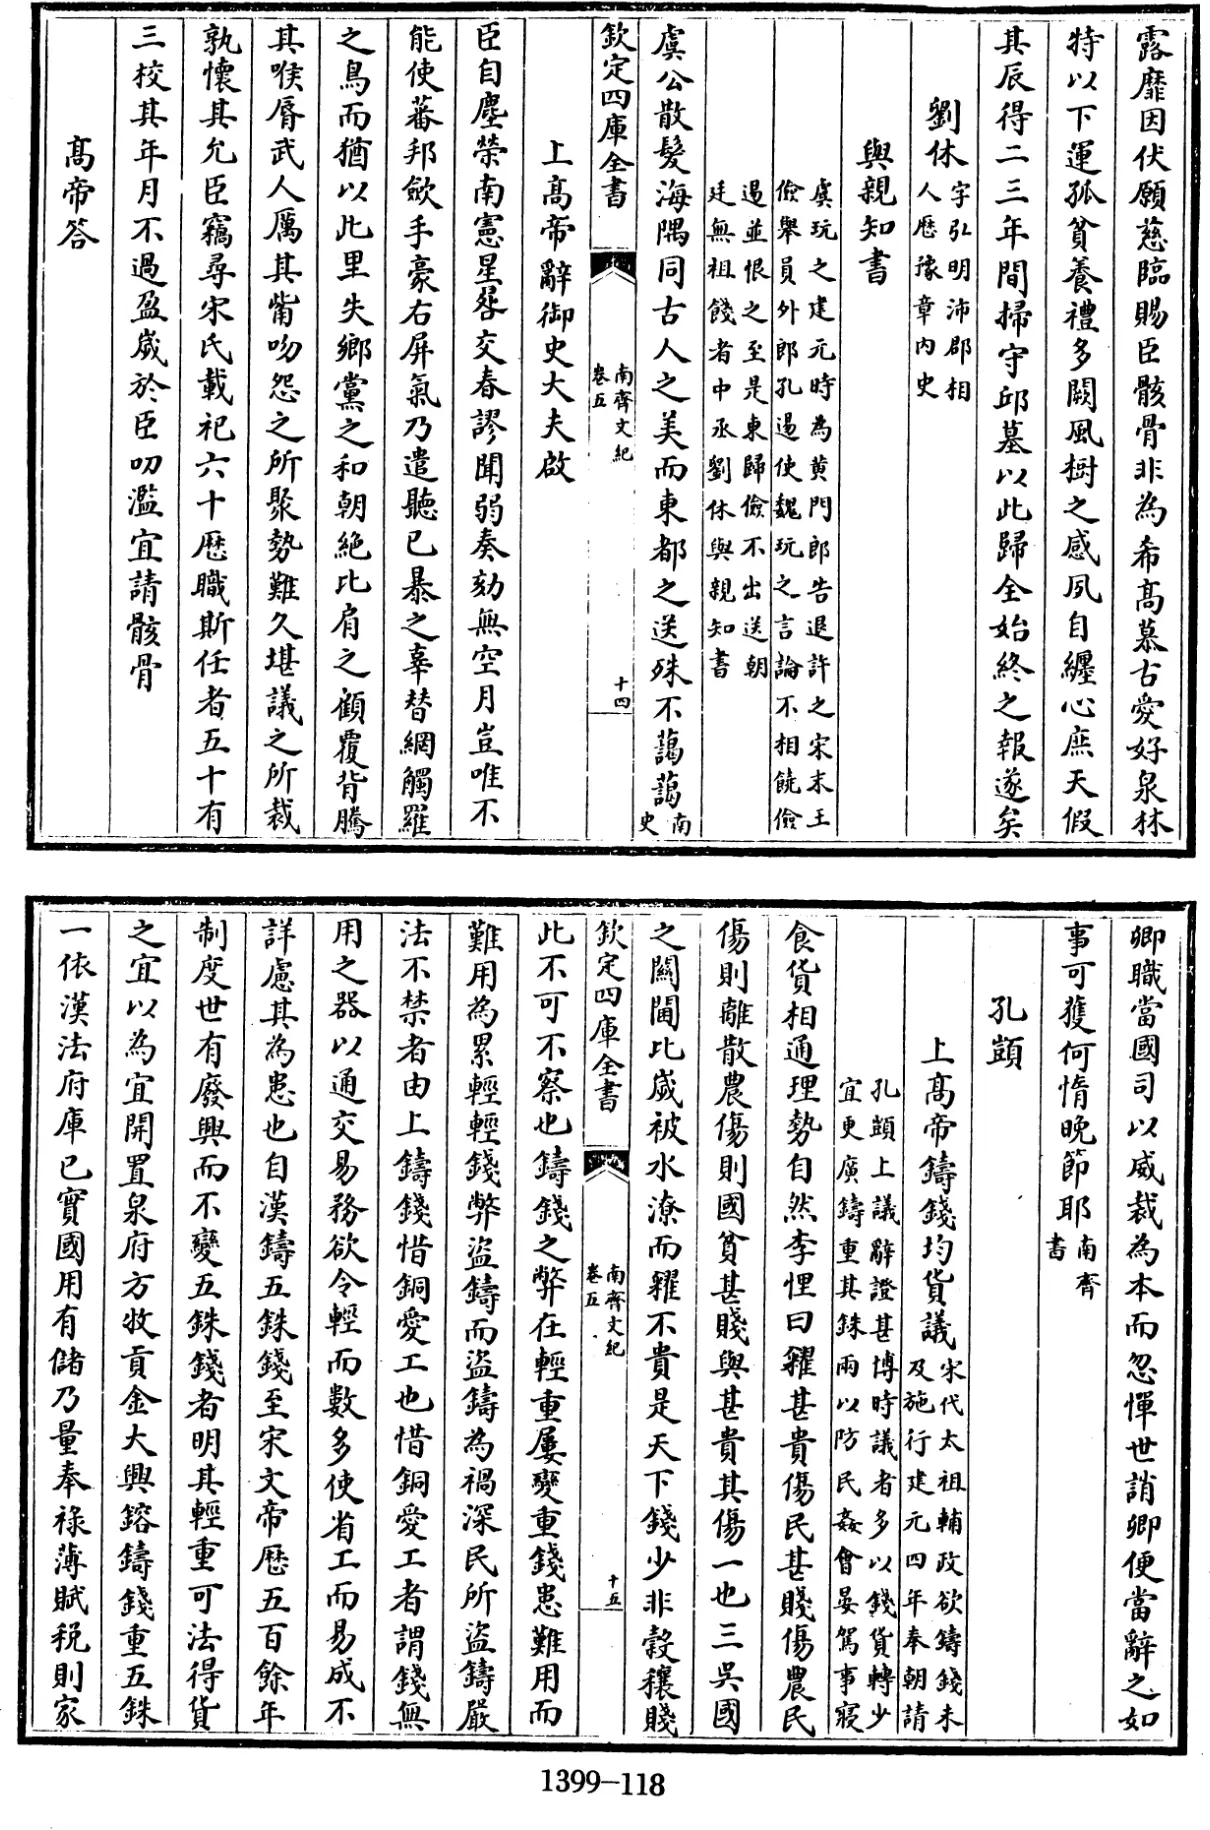 露靡因伏願慈臨賜臣骸骨非為希髙慕古愛好泉林
特以下運孤貧養禮多闕風樹之感夙自纒心庶天假
其辰得二三年間掃守邱墓以此歸全始終之報遂矣
劉休字引明沛郡相
人歴豫章内史
與親知書
虞玩之建元時為黄門郎告退許之宋末王
儉舉員外郎孔逷使魏玩之言論不相饒儉
逷並恨之至是東歸儉不出送朝
廷無祖餞者中丞劉休與親知書
虞公散髮海隅同古人之美而東都之送殊不藹藹南
史
欽定四庫全書
南齊文紀
卷五
十四
上髙帝辭御史大夫啟
臣自塵榮南憲星晷交春謬聞弱奏劾無空月豈唯不
能使蕃邦歛手豪右屏氣乃遣聽已暴之辜替網觸羅
之鳥而猶以此里失鄉黨之和朝絶比肩之顧覆背騰
其喉脣武人厲其觜吻怨之所聚勢難久堪議之所裁
孰懷其允臣竊尋宋氏載祀六十歴職斯任者五十有
三校其年月不過盈歳於臣叨濫宜請骸骨
髙帝答
卿職當國司以威裁為本而忽憚世誚卿便當辭之如
事可獲何惰晚節耶南齊
書
孔顗
上髙帝鑄錢均貨議宋代太祖輔政欲鑄錢未
及施行建元四年奉朝請
孔顗上議辭證甚博時議者多以錢貨轉少
宜更廣鑄重其銖兩以防民姦㑹晏駕事寢
食貨相通理勢自然李悝曰糴甚貴傷民甚賤傷農民
傷則離散農傷則國貧甚賤與甚貴其傷一也三吳國
之關閫比歳被水潦而糴不貴是天下錢少非穀穰賤
欽定四庫全書
南齊文紀
卷五
十五
此不可不察也鑄錢之弊在輕重屢變重錢患難用而
難用為累輕輕錢弊盜鑄而盜鑄為禍深民所盜鑄嚴
法不禁者由上鑄錢惜銅愛工也惜銅愛工者謂錢無
用之器以通交易務欲令輕而數多使省工而易成不
詳慮其為患也自漢鑄五銖錢至宋文帝歴五百餘年
制度世有廢興而不變五銖錢者明其輕重可法得貨
之宜以為宜開置泉府方收貢金大興鎔鑄錢重五銖
一依漢法府庫已實國用有儲乃量奉祿薄賦税則家
1399-118